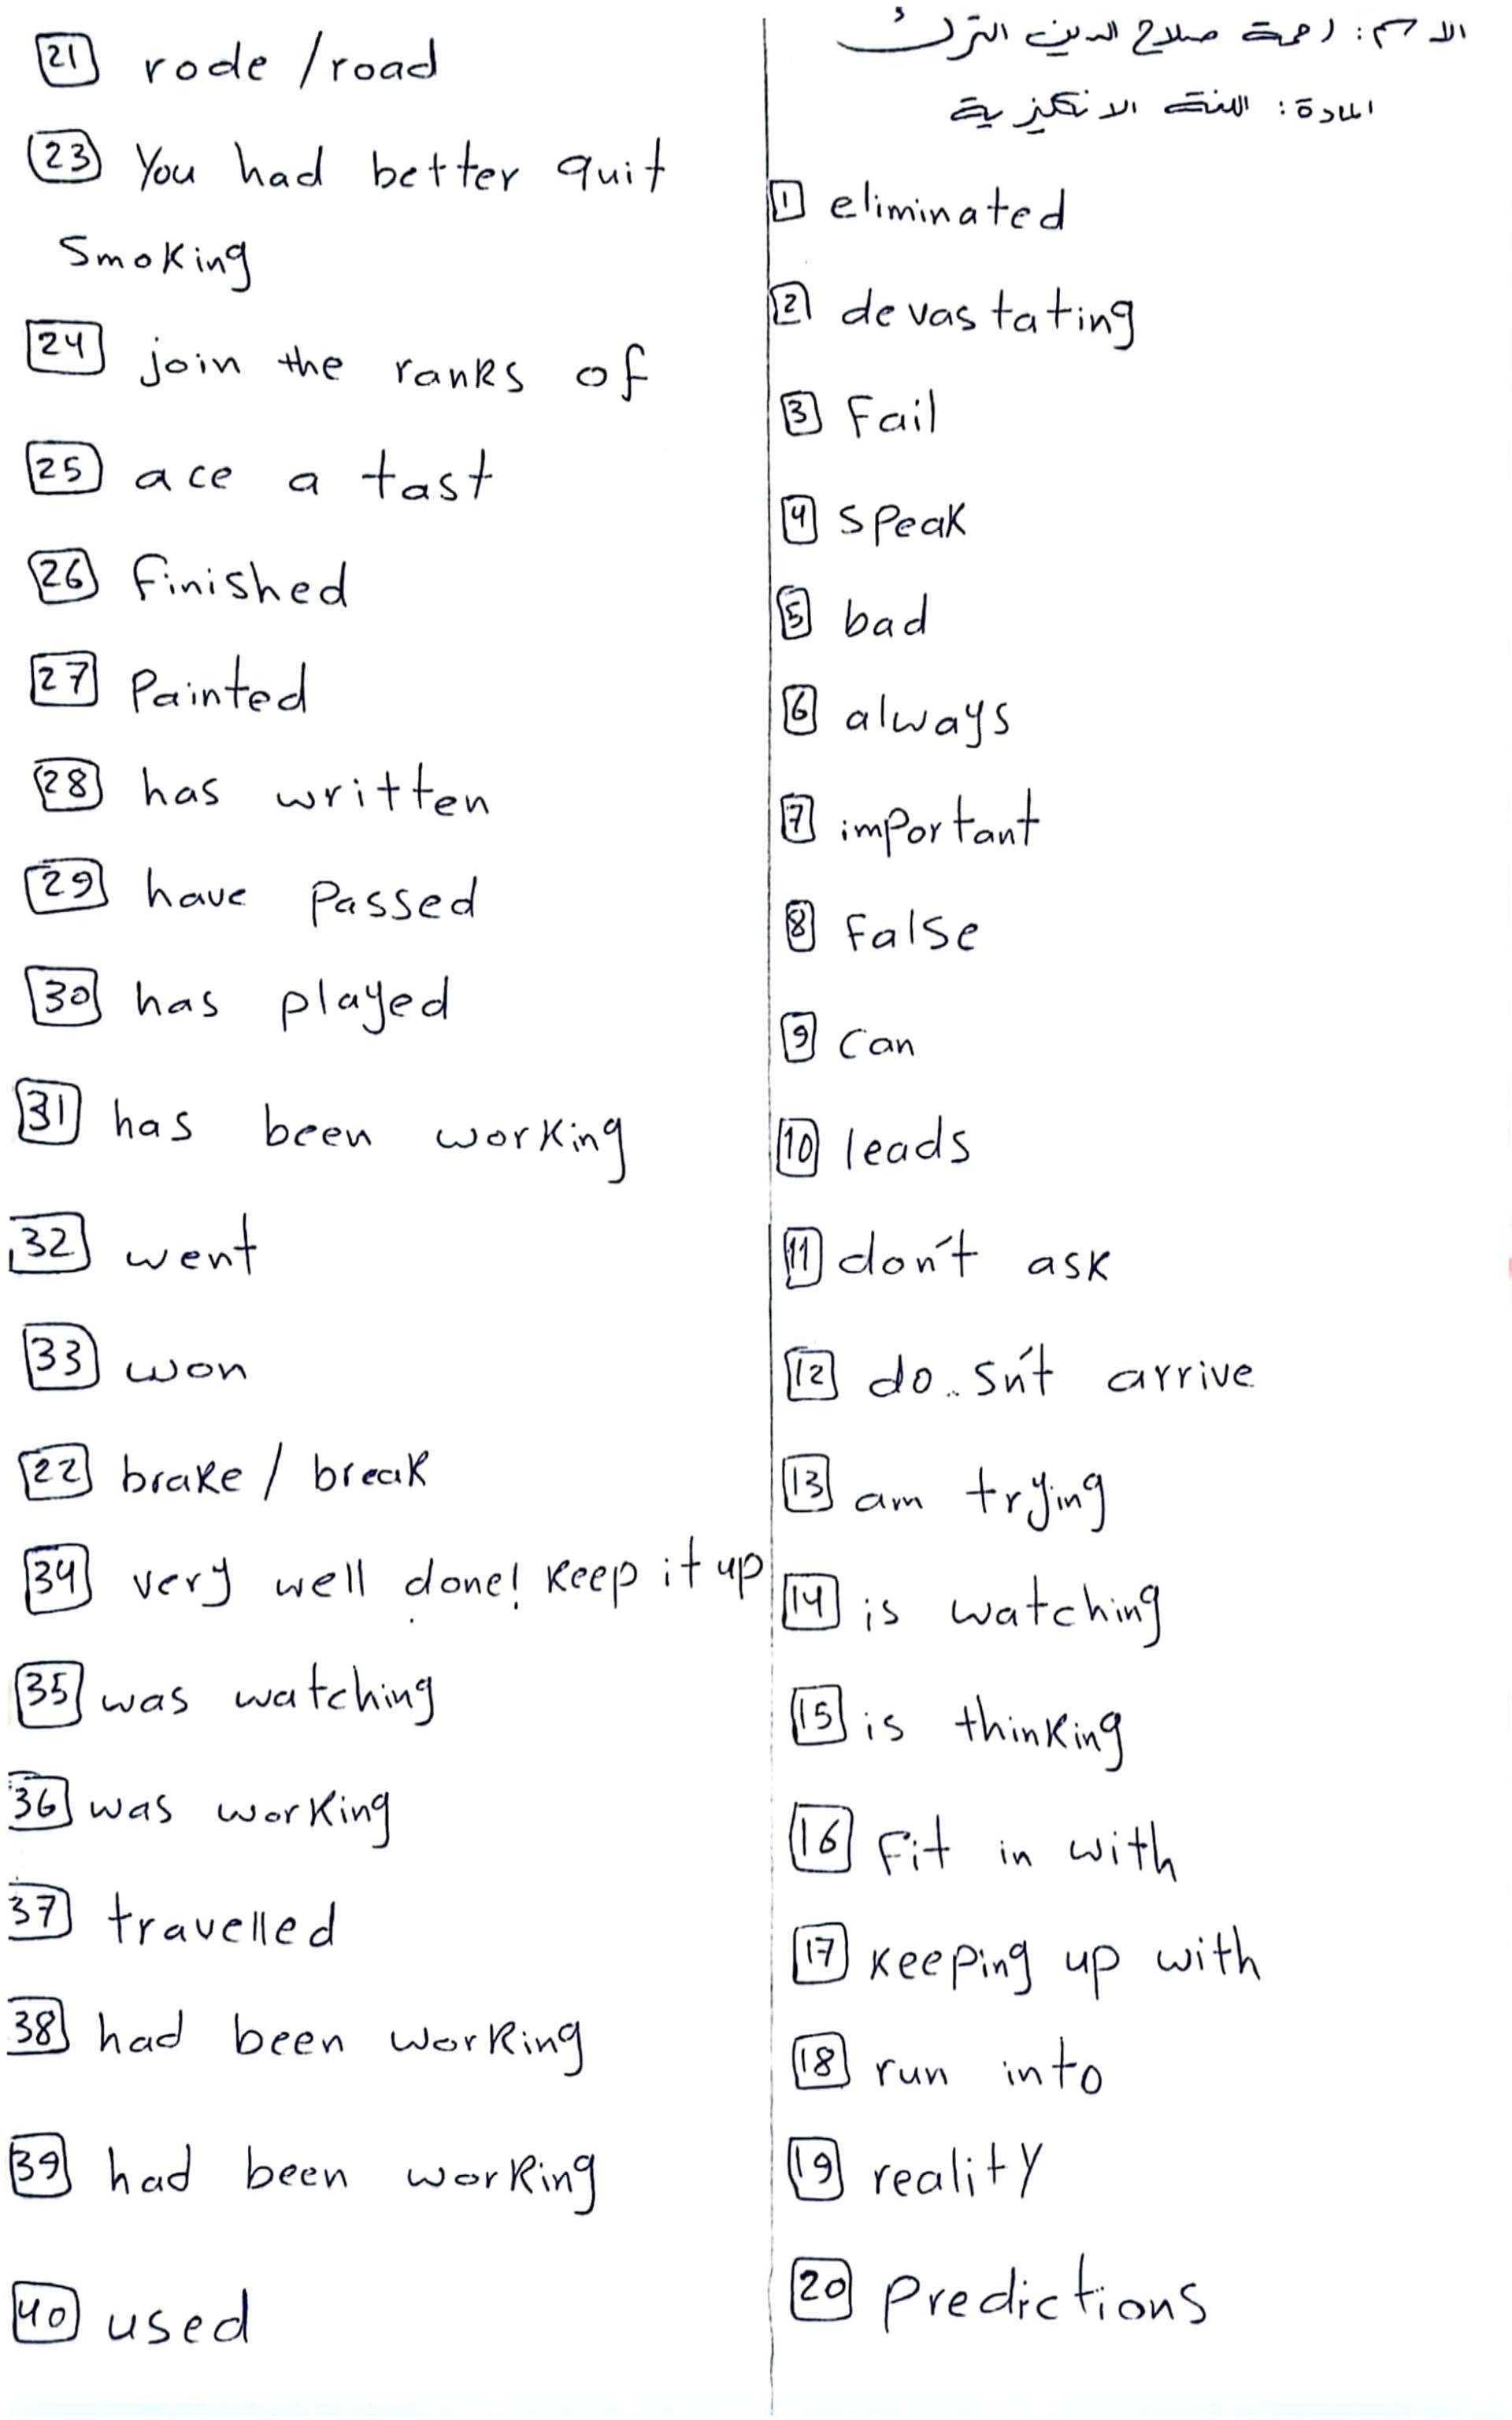 الاسم: رحمة صلاح الدين الترك
المادة: اللغة الانكليزية
1 eliminated
2 devastating
3 Fail
4 speak
5 bad
6 always
7 important
8 False
9 can
10 leads
11 don't ask
12 do..sn't arrive
13 am trying
14 is watching
15 is thinking
16 Fit in with
17 keeping up with
18 run into
19 reality
20 predictions
21 rode / road
23 You had better quit
smoking
24 join the ranks of
25 ace a tast
26 finished
27 Painted
28 has written
29 have passed
30 has played
31 has been working
32 went
33 won
22 brake / break
34 very well done! keep it up
35 was watching
36 was working
37 travelled
38 had been working
39 had been working
40 used